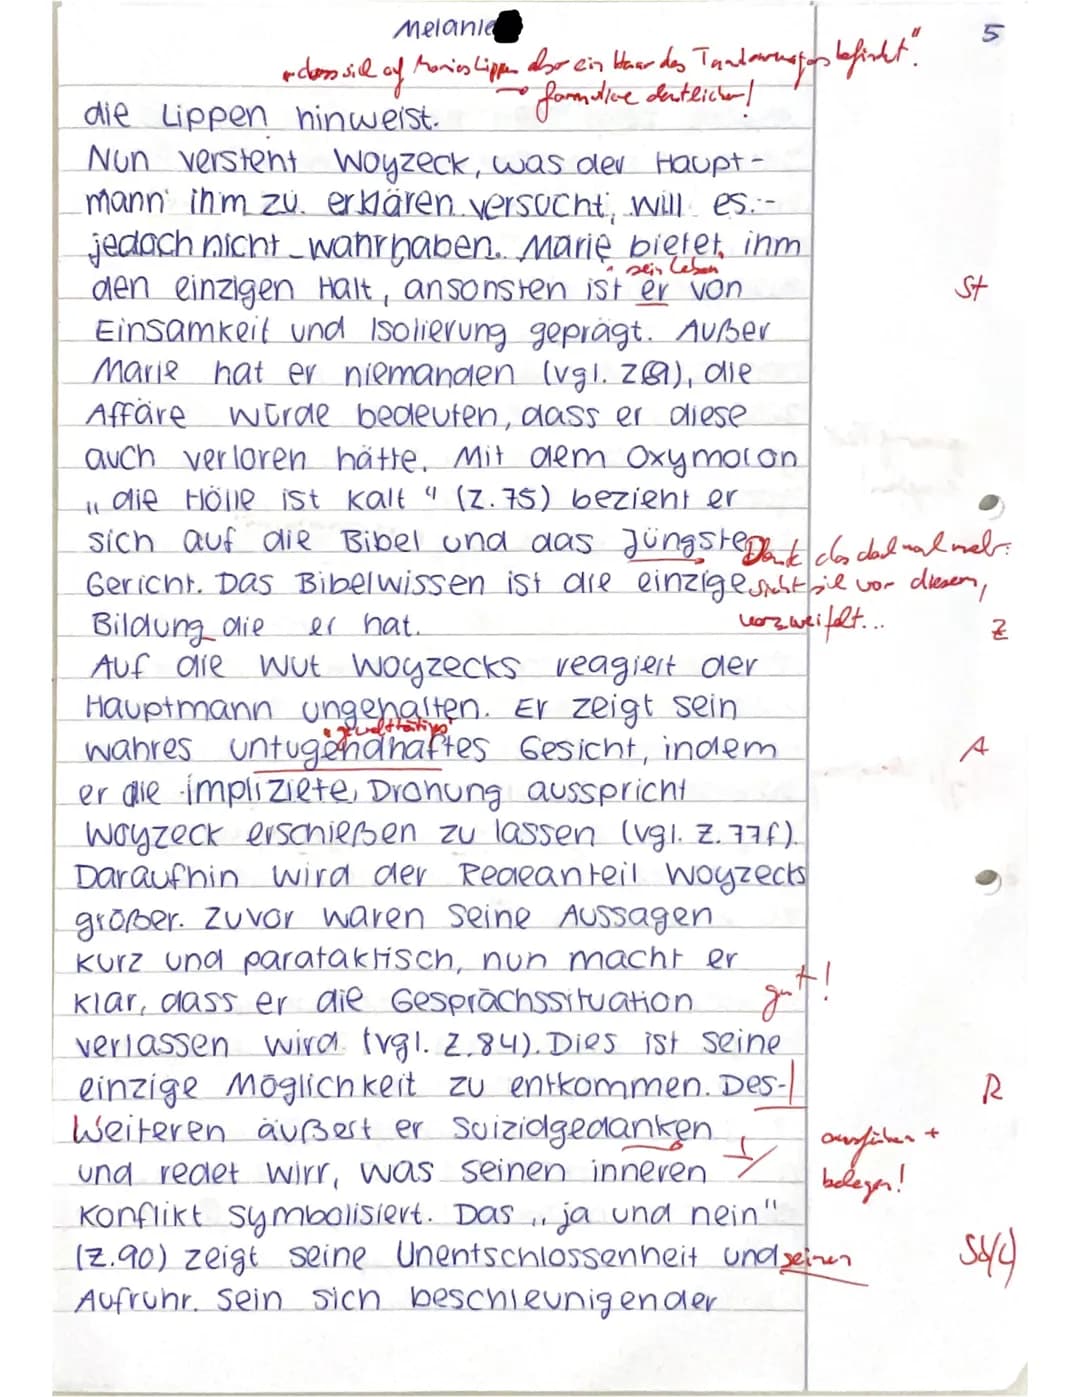 Melanie
5
dass sich auf Maries Lippen aber ein Haar des Tambourmajors befindet".
→ formuliere deutlicher!
die Lippen hinweist.
Nun versteht Woyzeck, was der Haupt-
mann ihm zu erklären versucht, will es
jedoch nicht wahrhaben. Marie bietet ihm
sein Leben
den einzigen Halt, ansonsten ist er von
St
Einsamkeit und Isolierung geprägt. Außer
Marie hat er niemanden (vgl. Z69), die
Affäre würde bedeuten, dass er diese
auch verloren hätte. Mit dem Oxymoron
„die Hölle ist kalt" (Z.75) bezieht er
sich auf die Bibel und das Jüngste
Gericht. Das Bibelwissen ist die einzige
vor diesem,
Bildung die er hat.
verzweifelt...
Z
Auf die Wut Woyzecks reagiert der
Hauptmann ungehalten. Er zeigt sein
gewalttätiges
wahres untugendhaftes Gesicht, indem
A
er die impliziete Drohung ausspricht
Woyzeck erschießen zu lassen (vgl. Z.77f).
Daraufhin wird der Redeanteil Woyzecks
größer. Zuvor waren seine Aussagen
kurz und parataktisch, nun macht er
klar, dass er die Gesprächssituation
gut!
verlassen wird (vgl. Z.84). Dies ist seine
einzige Möglichkeit zu entkommen. Des-
R
Weiteren äußert er Suizidgedanken
ausführen +
und redet wirr, was seinen inneren
belegen!
Konflikt symbolisiert. Das „ja und nein"
(Z.90) zeigt seine Unentschlossenheit und seinen
Aufruhr. Sein sich beschleunigender